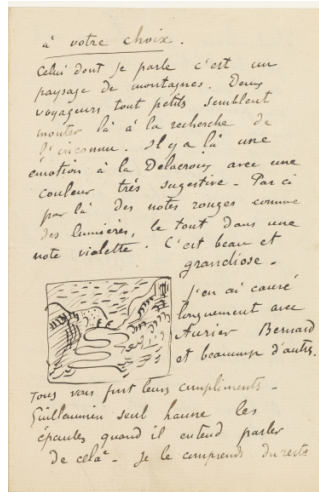 à votre choix.
Celui dont je parle c'est un
paysage de montagnes. Deux
voyageurs tout petits semblent
monter là à la recherche de
l'inconnu. Il y a là une
émotion à la Delacroix avec une
couleur très sugestive – Par ci
par là des notes rouges comme
des lumières, le tout dans une
note violette. C'est beau et
grandiose –
J'en ai causé
longuement avec
Aurier Bernard
et beaucoup d'autres.
Tous vous font leurs compliments –
Guillaumin seul hausse les
épaules quand il entend parler
de cela – Je le comprends du reste